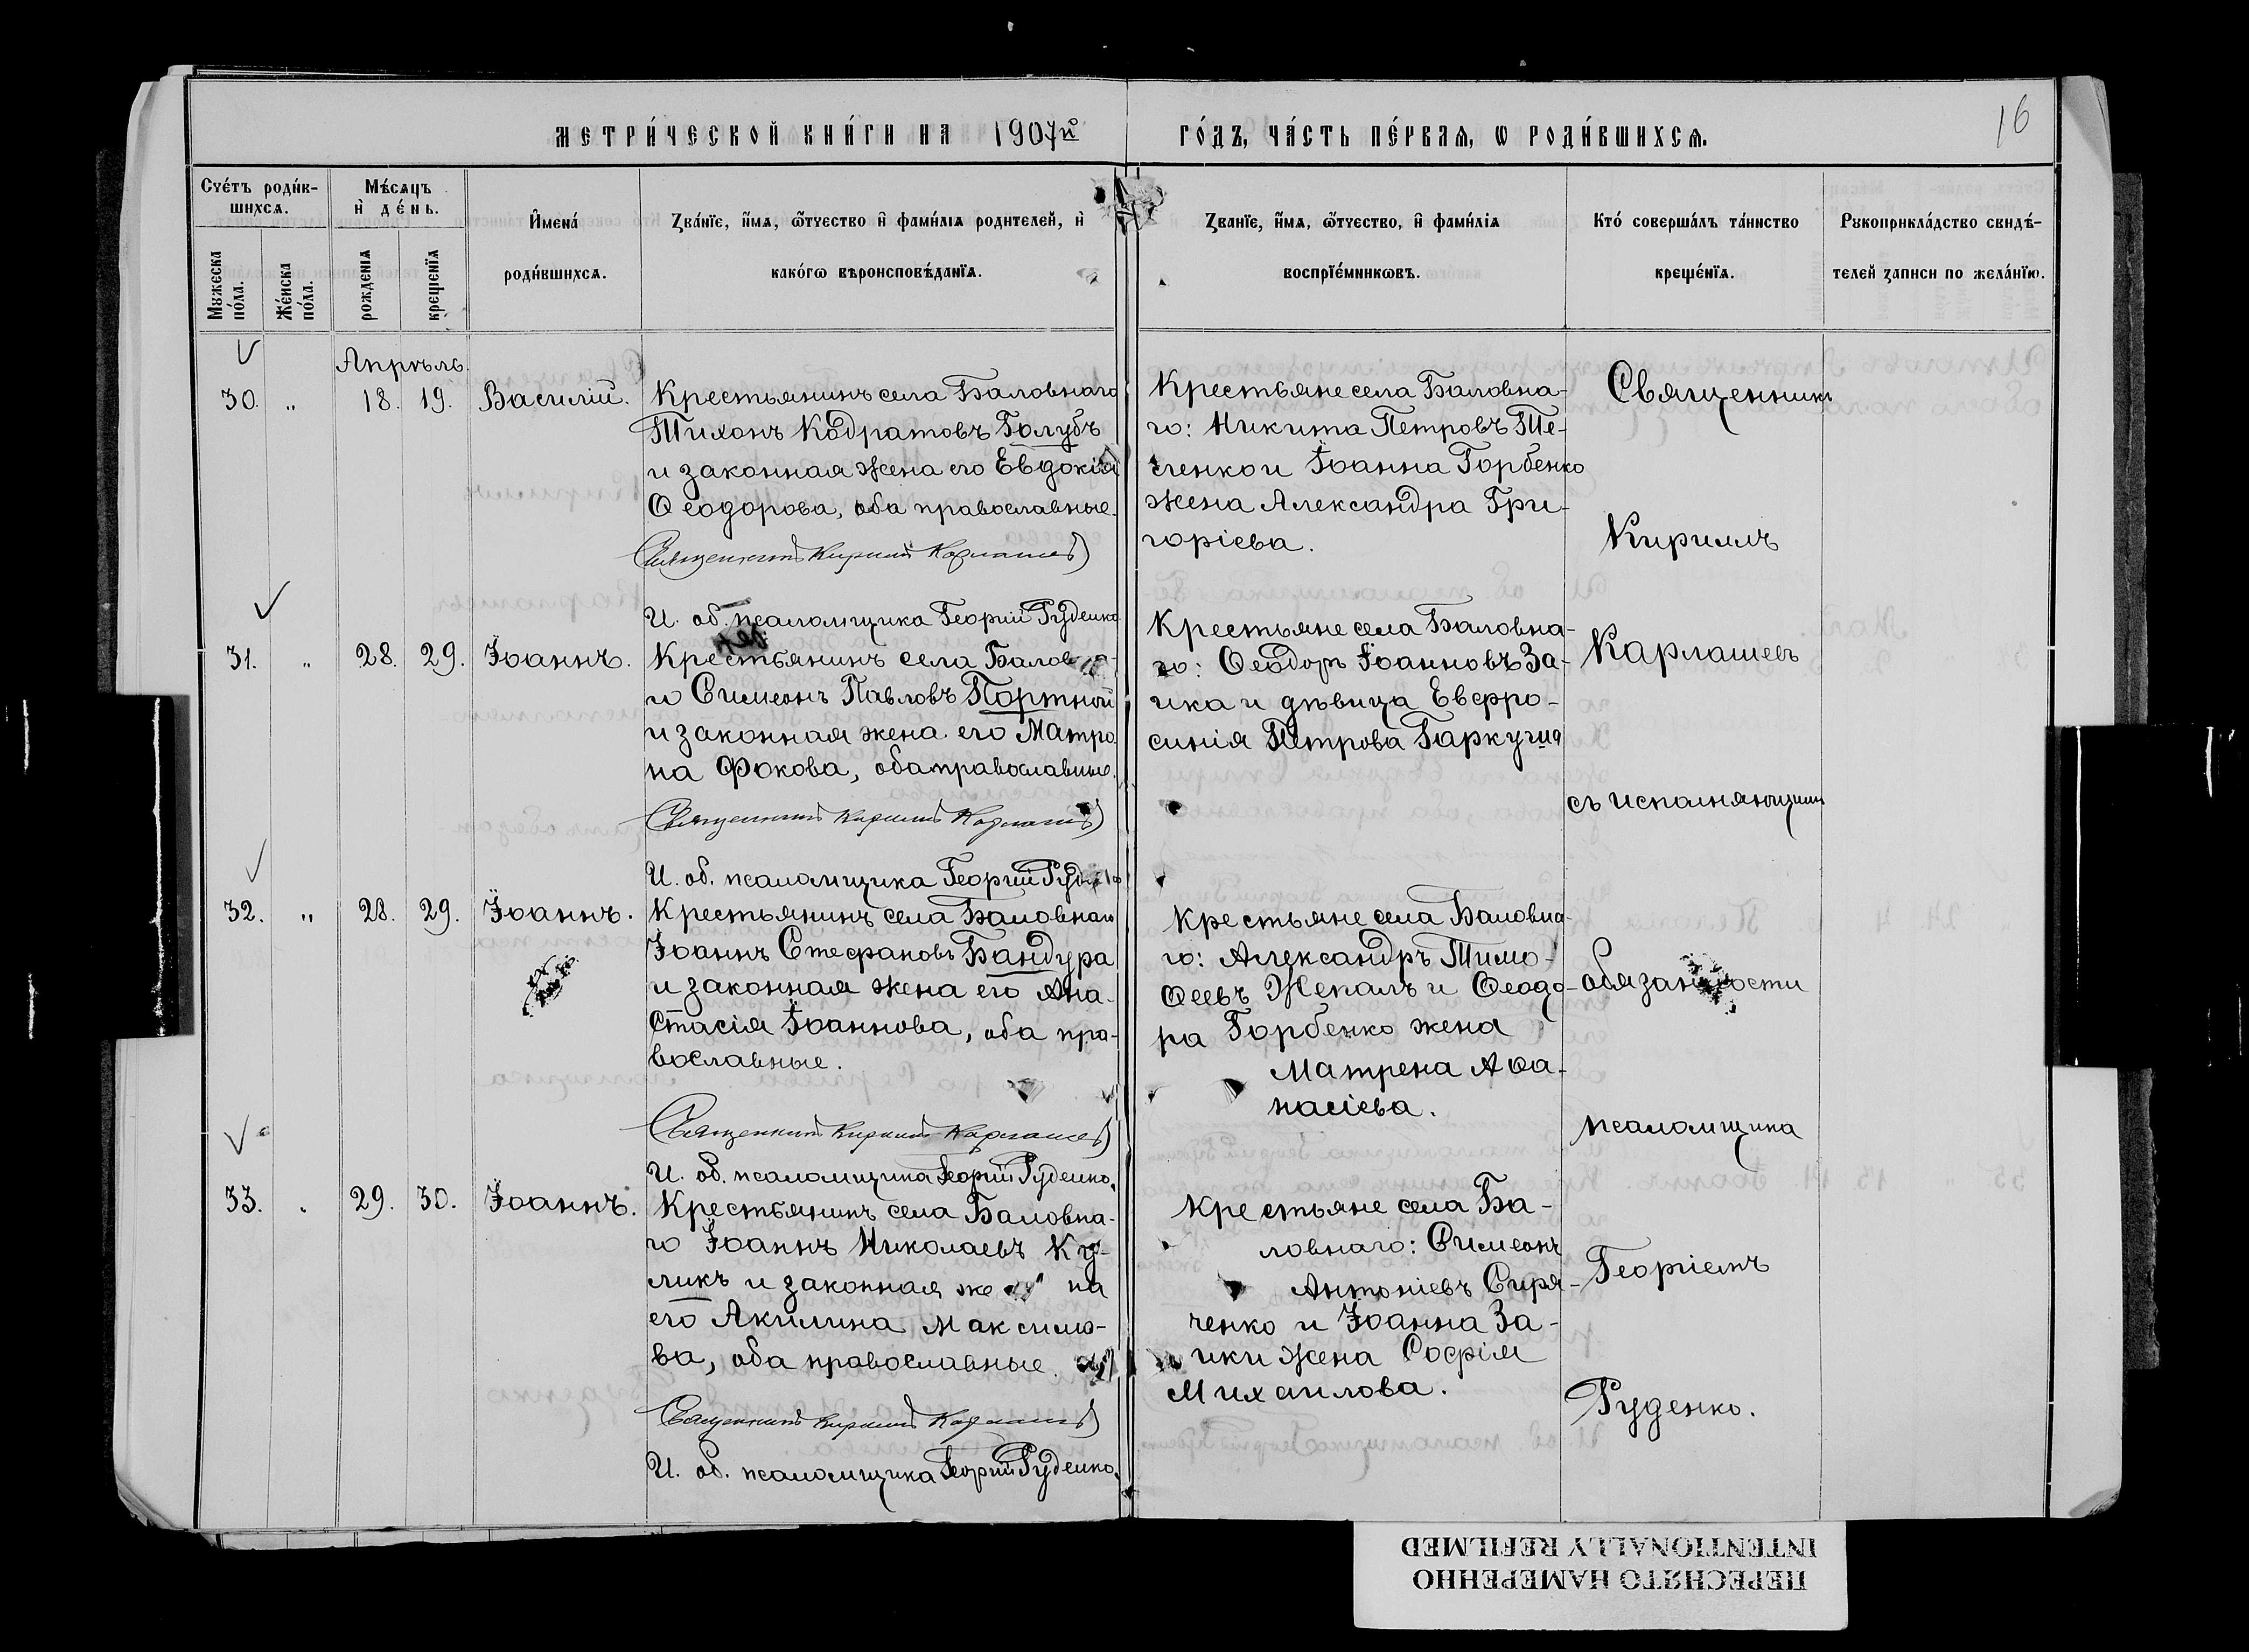 МЕТРИ́ЧЕСКОЙ КНИ́ГИ НА 1907й ГО́ДЪ, ЧА́СТЬ ПЕ́РВАѦ, Ѡ РОДИ́ВШИХСѦ.
16
Счетъ роди́в-
шихсѧ.
Мꙋжеска по́ла.
Же́нска по́ла.
Мѣ́сѧцъ
и҆ де́нь.
рожденїѧ
креще́нїѧ
И҆мена̀
роди́вшихсѧ.
Зва́нїе, и҆́мѧ, ѻ҆́тчество и҆ фамилїѧ родителей, и҆
како́гѡ вѣроисповѣ́данїѧ.
Зва́нїе, и҆́мѧ, ѻ҆́тчество, и҆ фами́лїѧ
воспрїе́мникѡвъ.
Кто́ соверша́лъ та́инство
креще́нїѧ.
Рꙋкоприкла́дство свидѣ́-
телей записи по жела́нїю.
Апрѣль.
30. „ 18. 19. Василій.
Крестьянинъ села Баловнаго
Тихонъ Кодратовъ Голубъ
и законная жена его Евдокія
Ѳеодорова, оба православные.
Священникъ Кириллъ Карлашевъ
И. об. псаломщика Георгій Руденко
Крестьяне села Баловна-
го: Никита Петровъ Те-
ленко и Іоанна Горбенко
жена Александра Гри-
горіева.
31. „ 28. 29. Іоаннъ.
Крестьянинъ села Баловна-
го Симеонъ Павловъ Портной
и законная жена его Матро
на Фокова, оба православные.
Священникъ Кириллъ Карлашевъ
И. об. псаломщика Георгій Руденко
Крестьяне села Баловна-
го: Ѳеодоръ Іоанновъ За-
ика и дѣвица Евфро-
синія Петрова Гаркуша
32. „ 28. 29. Іоаннъ.
Крестьянинъ села Баловнаго
Іоаннъ Стефановъ Бандура
и законная жена его Ана-
стасія Іоаннова, оба пра-
вославные.
Священникъ Кириллъ Карлашевъ
И. об. псаломщика Георгій Руденко.
Крестьяне села Баловна-
го: Александръ Тимо-
ѳеевъ Жепалъ и Ѳеодо-
ра Горбенко жена
Матрена Аѳа-
насіева.
33. „ 29. 30. Іоаннъ.
Крестьянинъ села Баловна-
го Іоаннъ Николаевъ Ку-
ликъ и законная жена
его Акилина Максимо-
ва, оба православные.
Священникъ Кириллъ Карлашевъ
И. об. псаломщика Георгій Руденко.
Крестьяне села Ба-
ловнаго: Симеонъ
Антоніевъ Сиря-
ченко и Іоанна За-
ики жена Софія
Михаилова.
Священникъ
Кириллъ
Карлашевъ
съ исполняющимъ
обязанности
псаломщика
Георгіемъ
Руденко.
ПЕРЕСНЯТО НАМЕРЕННО
INTENTIONALLY REFILMED